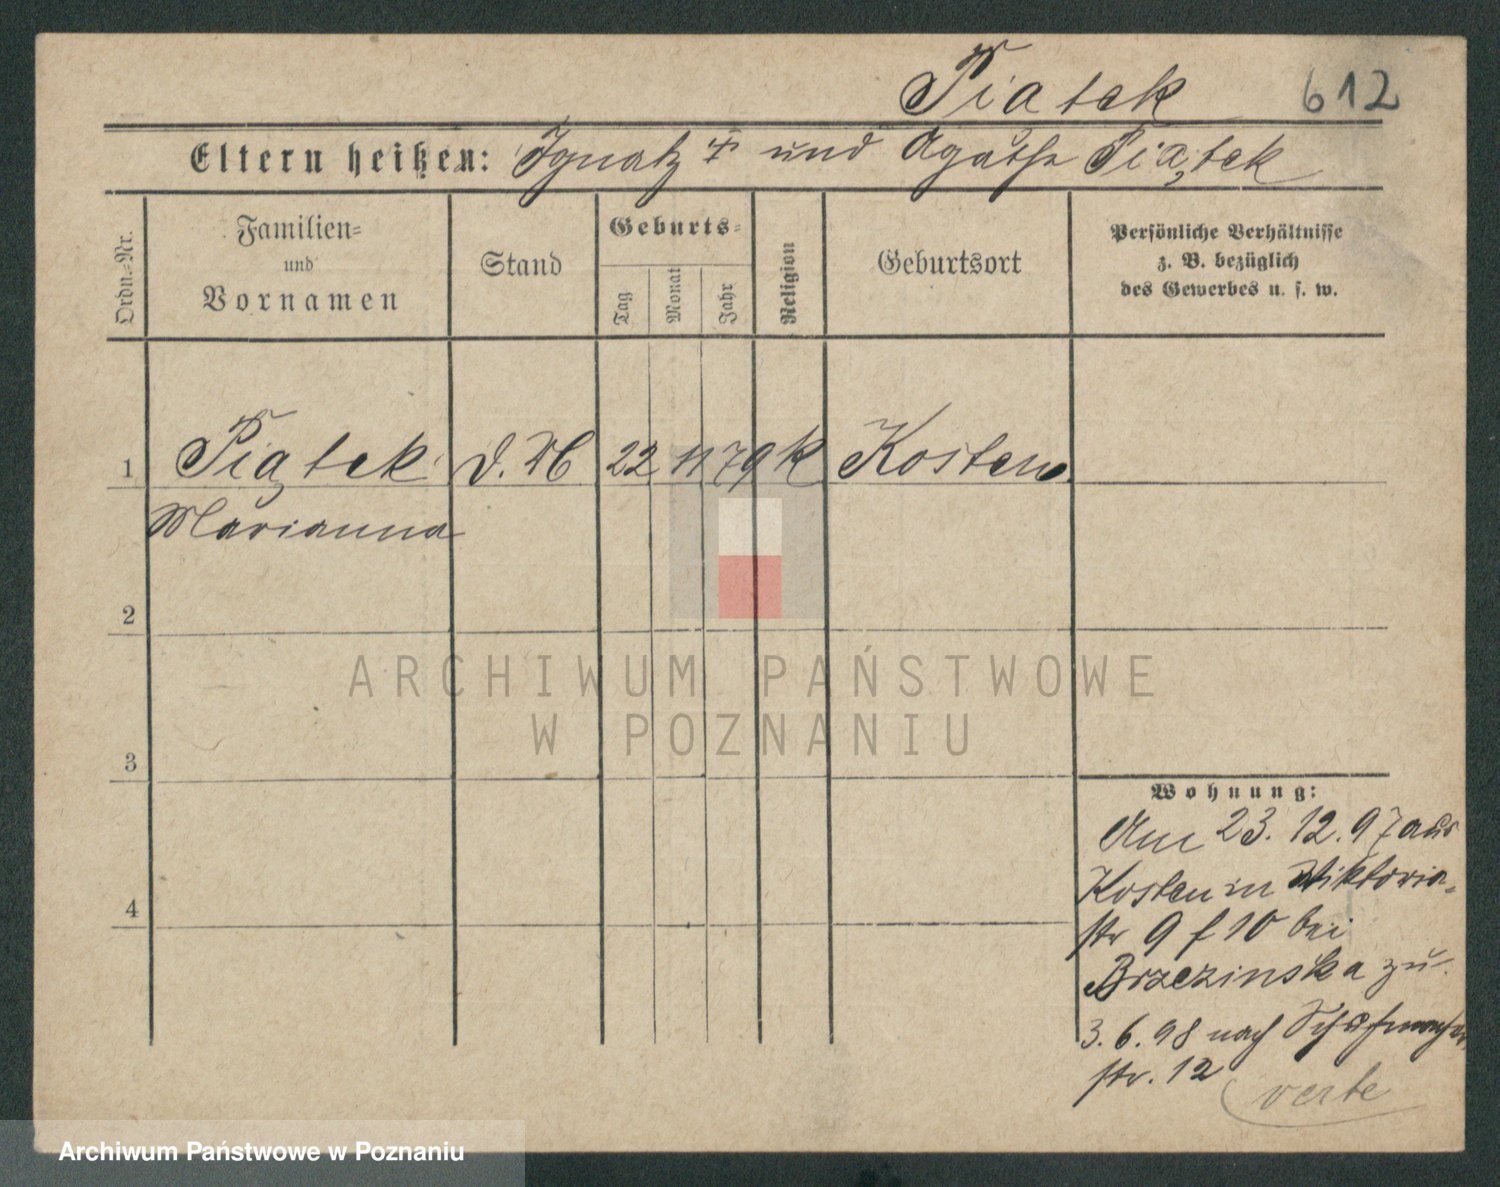 Piatek 612
Eltern heißen: Ignatz † und Agathe Piątek
Ordn.-Nr.
Familien-
und
Vornamen
Stand
Geburts-
Tag
Monat
Jahr
Religion
Geburtsort
Persönliche Verhältnisse
z. B. bezüglich
des Gewerbes u. s. w.
1 Piątek d. M 22 11 79 k Kosten
Marianna
2
3
4
Wohnung:
Am 23. 12. 97 aus
Kosten in Wiktoria-
str 9 f 10 bei
Brzezinska zu.
3. 6. 98 nach Schuhmacher
str. 12
verte
ARCHIWUM PAŃSTWOWE
W POZNANIU
Archiwum Państwowe w Poznaniu